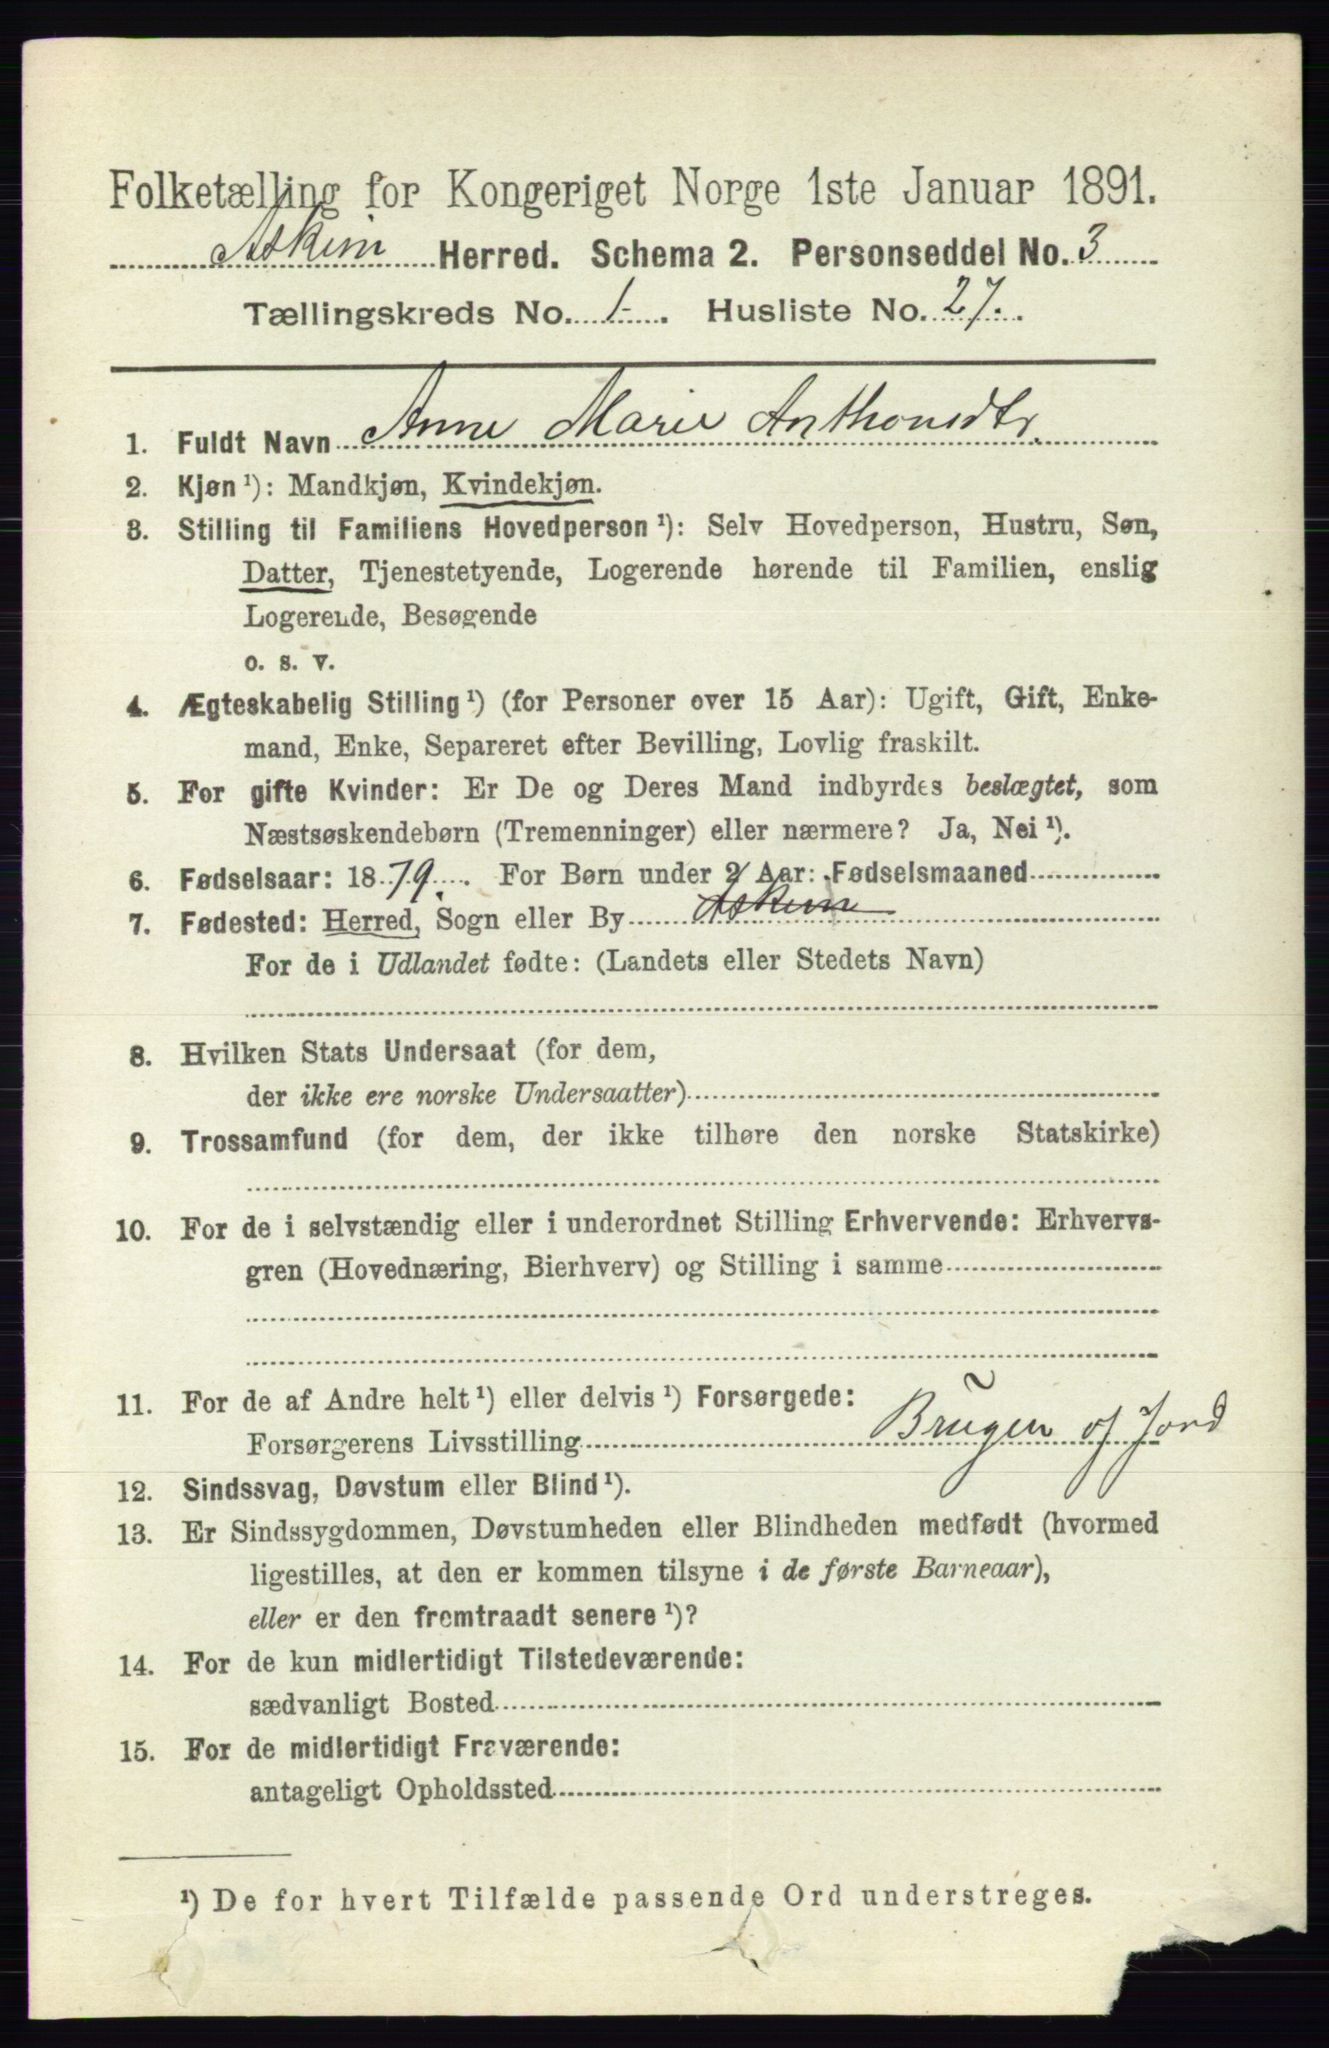 Folketælling for Kongeriget Norge 1ste Januar 1891.
Askim Herred. Schema 2. Personseddel No. 3
Tællingskreds No. 1. Husliste No. 27.
1. Fuldt Navn Anne Marie Anthonsdtr.
2. Kjøn¹): Mandkjøn, Kvindekjøn.
3. Stilling til Familiens Hovedperson¹): Selv Hovedperson, Hustru, Søn,
Datter, Tjenestetyende, Logerende hørende til Familien, enslig
Logerende, Besøgende
o. s. v.
4. Ægteskabelig Stilling¹) (for Personer over 15 Aar): Ugift, Gift, Enke-
mand, Enke, Separeret efter Bevilling, Lovlig fraskilt.
5. For gifte Kvinder: Er De og Deres Mand indbyrdes beslægtet, som
Næstsøskendebørn (Tremenninger) eller nærmere? Ja, Nei¹).
6. Fødselsaar: 1879. For Børn under 2 Aar: Fødselsmaaned
7. Fødested: Herred, Sogn eller By Askim
For de i Udlandet fødte: (Landets eller Stedets Navn)
8. Hvilken Stats Undersaat (for dem,
der ikke ere norske Undersaatter)
9. Trossamfund (for dem, der ikke tilhøre den norske Statskirke)
10. For de i selvstændig eller i underordnet Stilling Erhvervende: Erhvervs-
gren (Hovednæring, Bierhverv) og Stilling i samme
11. For de af Andre helt¹) eller delvis¹) Forsørgede:
Forsørgerens Livsstilling Bruger af Jord
12. Sindssvag, Døvstum eller Blind¹).
13. Er Sindssygdommen, Døvstumheden eller Blindheden medfødt (hvormed
ligestilles, at den er kommen tilsyne i de første Barneaar),
eller er den fremtraadt senere¹)?
14. For de kun midlertidigt Tilstedeværende:
sædvanligt Bosted
15. For de midlertidigt Fraværende:
antageligt Opholdssted
¹) De for hvert Tilfælde passende Ord understreges.